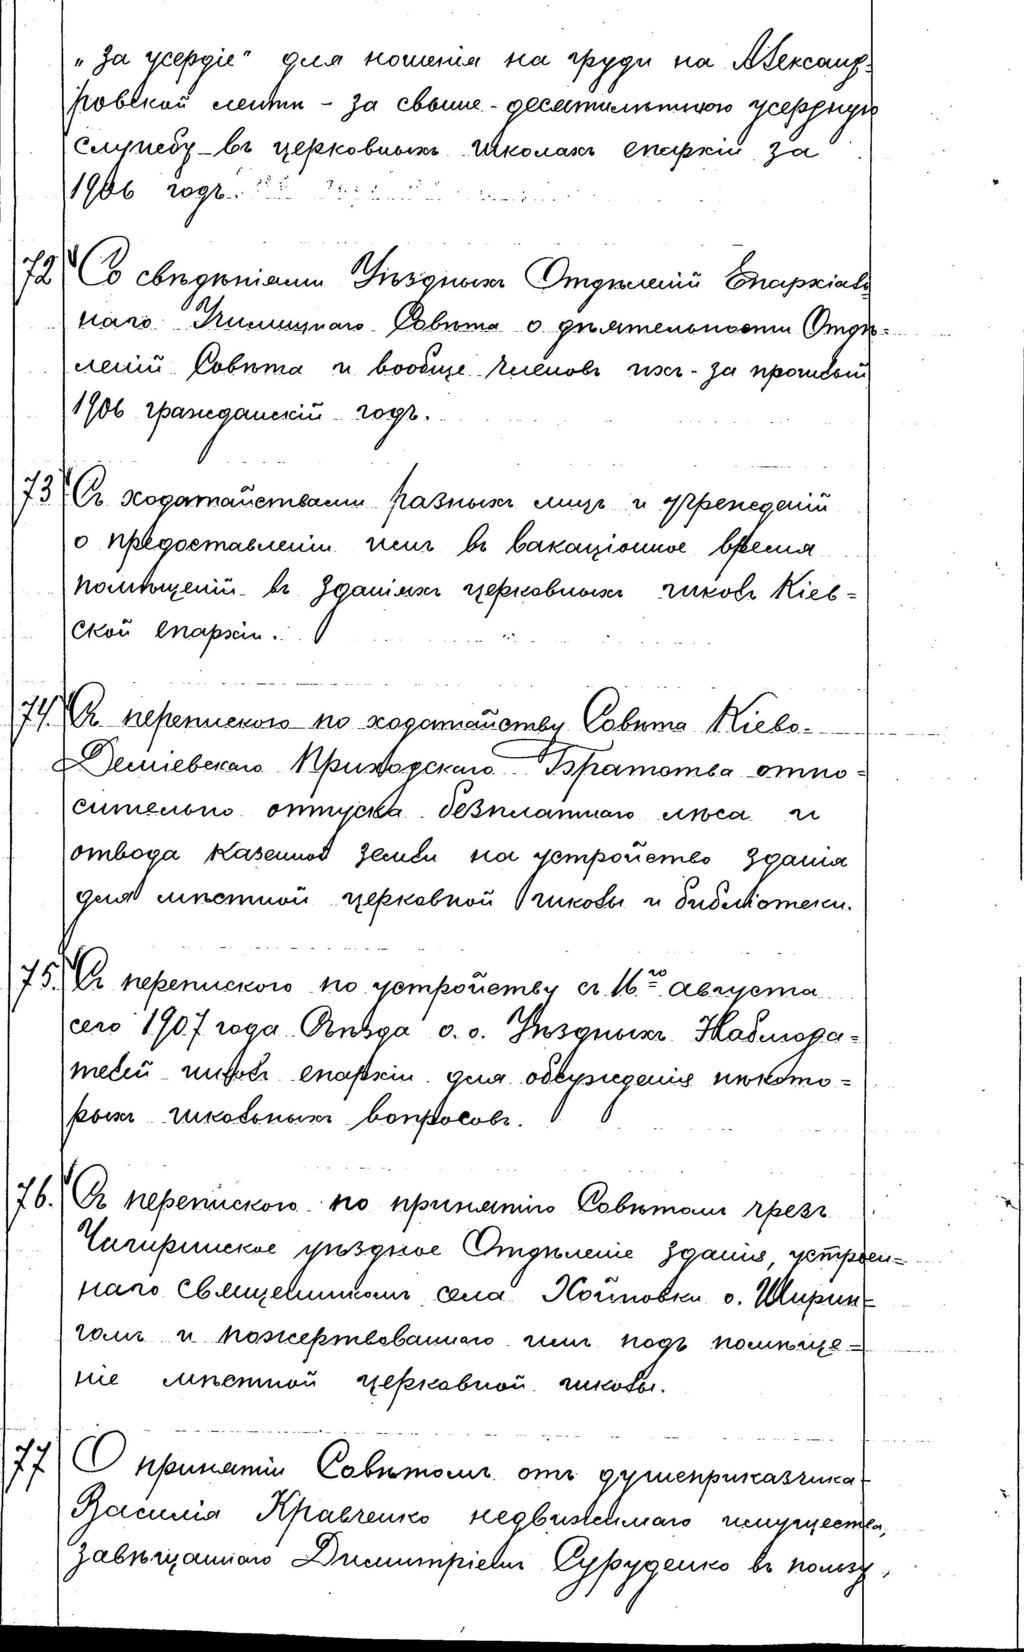 „За усердіе" для ношенія на груди на Александ-
ровской ленти - за свыше-десятилѣтнюю усердную
службу въ церковныхъ школахъ епархіи за
1906 годъ.
72 Со свѣдѣніями Уѣздныхъ Отдѣленій Епархіаль
наго Училищнаго Совѣта о дѣятельности Отдѣ=
леній Совѣта и вообще членовъ ихъ - за прошлый
1906 гражданскій годъ.
73 Съ ходатайствами разныхъ лицъ и учрежденій
о предоставленіи имъ въ вакаціонное время
помѣщеній въ зданіяхъ церковныхъ школъ Кіев=
ской епархіи.
74. Съ перепискою по ходатайству Совѣта Кіево-
Деміевскаго Приходскаго Братства отно=
сительно отпуска безплатнаго лѣса и
отвода казенной земли на устройство зданія
для мѣстной церковной школы и библіотеки.
75. Съ перепискою по устройству съ 16го августа
сего 1907 года Съѣзда о.о. Уѣздныхъ Наблюда=
телей школъ епархіи для обсужденія нѣкото=
рыхъ школьныхъ вопросовъ.
76. Съ перепискою по принятію Совѣтомъ чрезъ
Чигиринское уѣздное Отдѣленіе зданія, устроен=
наго священникомъ села Хойновки о. Ширин=
гомъ и пожертвованнаго имъ подъ помѣще=
ніе мѣстной церковной школы.
77 О принятіи Совѣтомъ отъ душеприказчика
Василія Кравченко недвижимаго имущества,
завѣщаннаго Димитріемъ Суруденко въ пользу